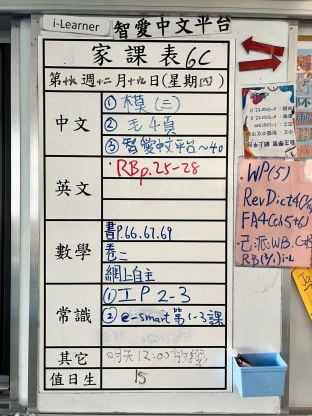 i-Learner 智愛中文平台
家課表 6C
第十六週十二月十九日(星期四)
中文
① 模(三)
② 毛4頁
③ 智愛中文平台~40
英文
RBp.25-28
數學
書P.66.67.69
卷二
網上自主
常識
① IP 2-3
② e-smart 第1-3課
其它
明天12:00放學
值日生
15
WP(5)
RevDict4
FA4
己派WB.